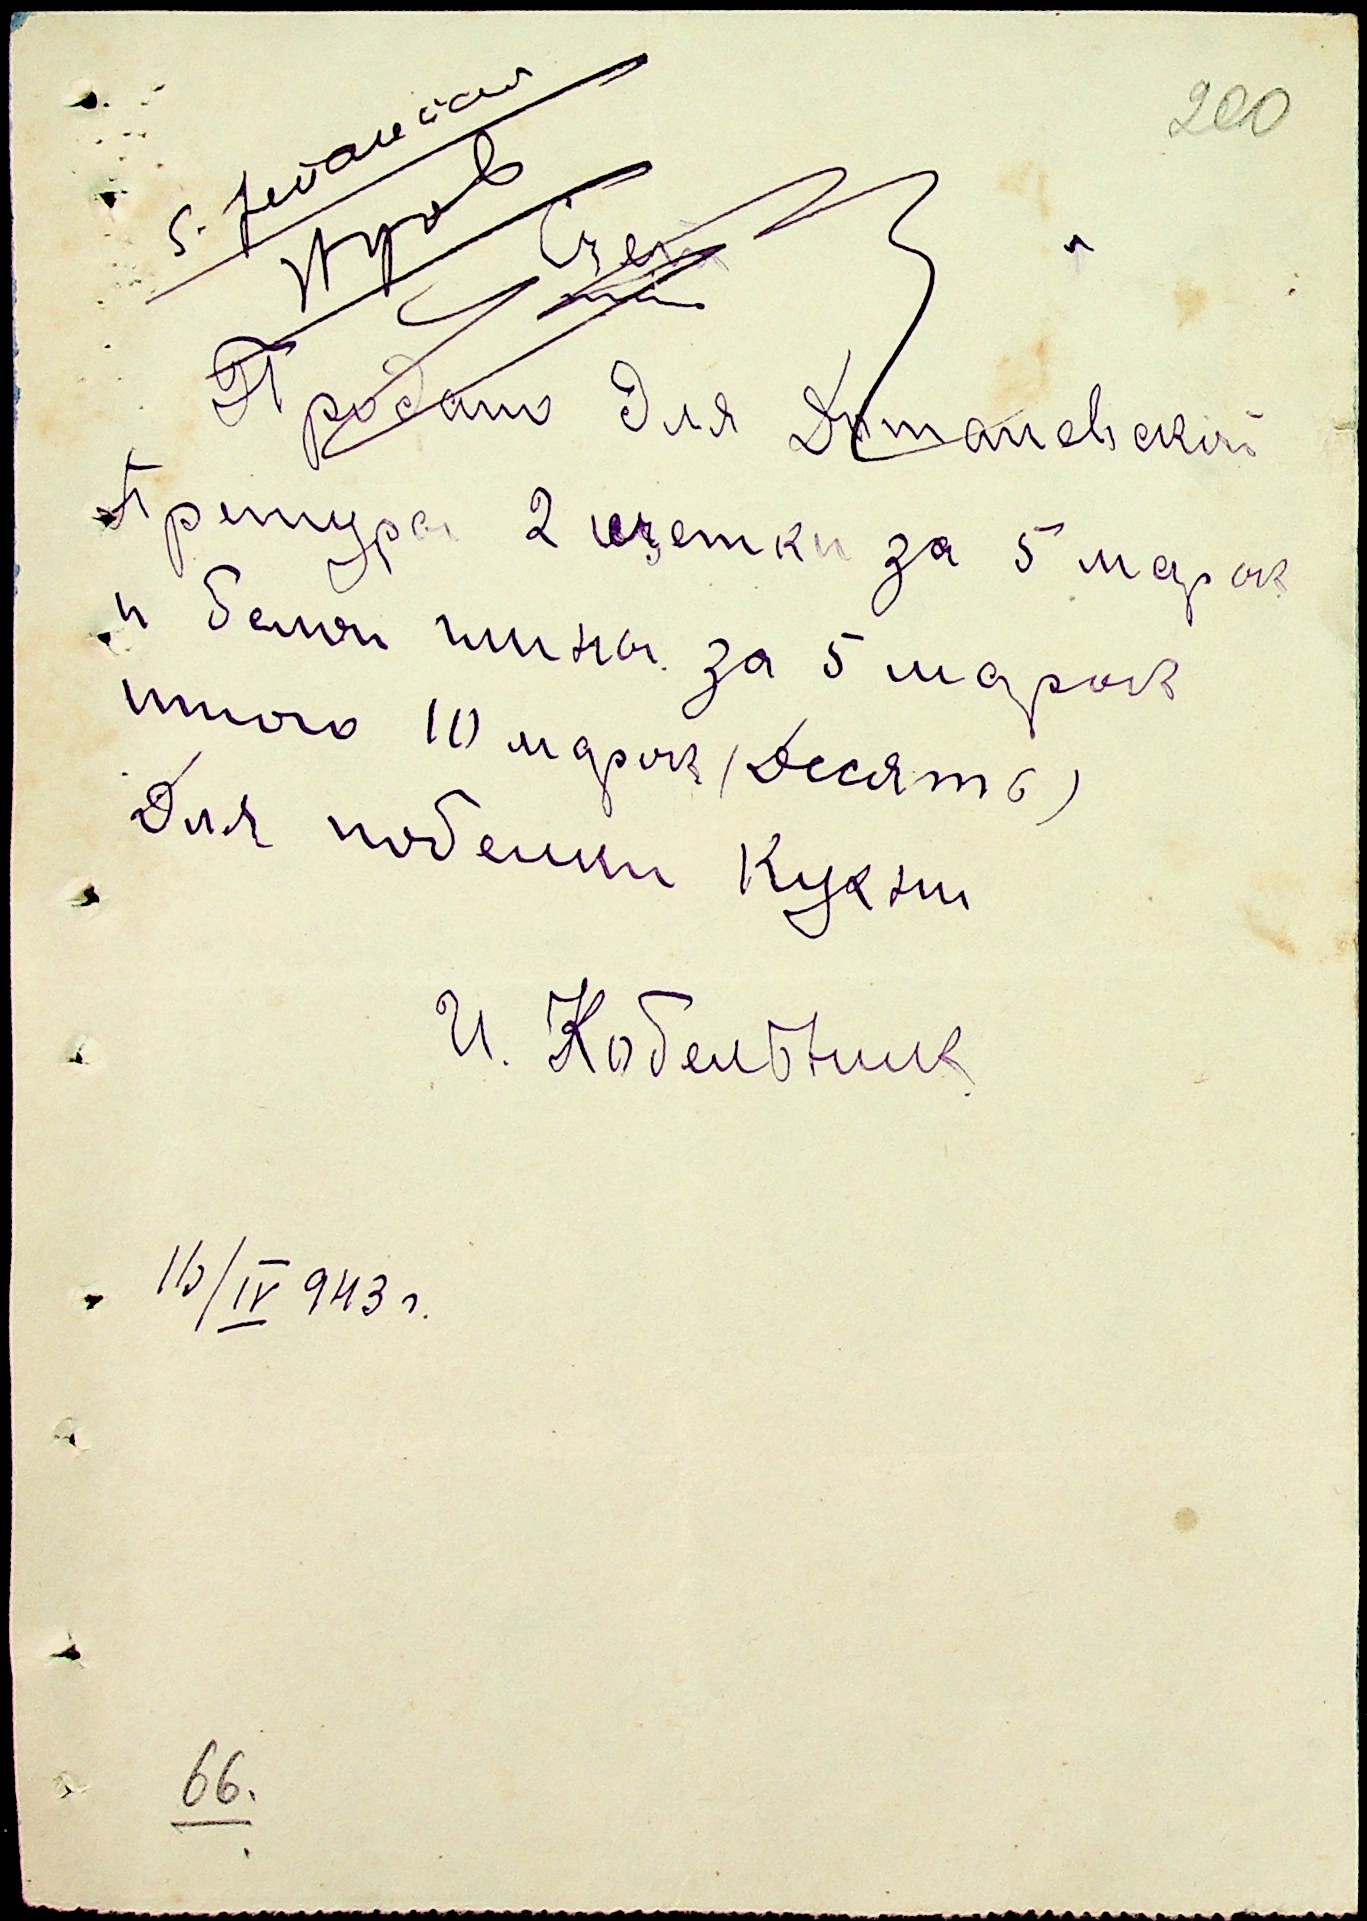 200
Счет
Продано для Думаневской
Претуры 2 щетки за 5 марок
и белой глины за 5 марок
итого 10 марок (Десять)
Для побелки Кухни
И. Кобельник
16/IV 943 г.
66.